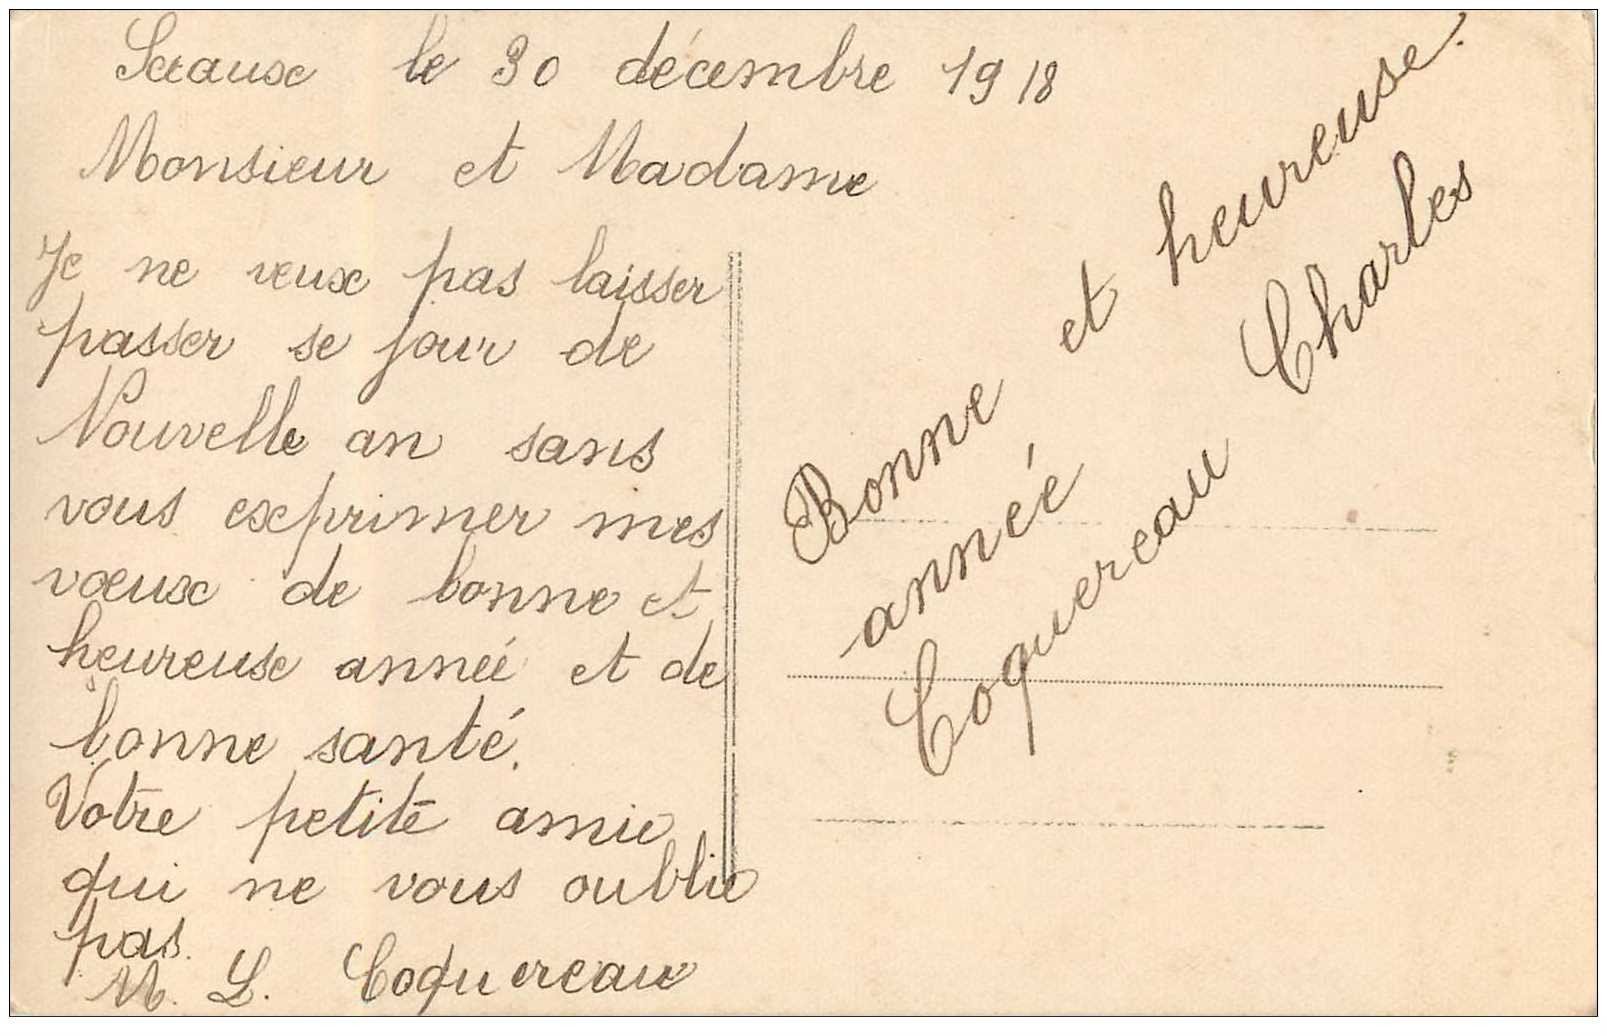 Sceaux le 30 décembre 1918
Monsieur et Madame
Je ne veux pas laisser
passer se jour de
Nouvelle an sans
vous exprimer mes
vœux de bonne et
heureuse année et de
bonne santé.
Votre petite amie
qui ne vous oublie
pas.
M. L. Coquereau
Bonne et heureuse.
année
Coquereau Charles